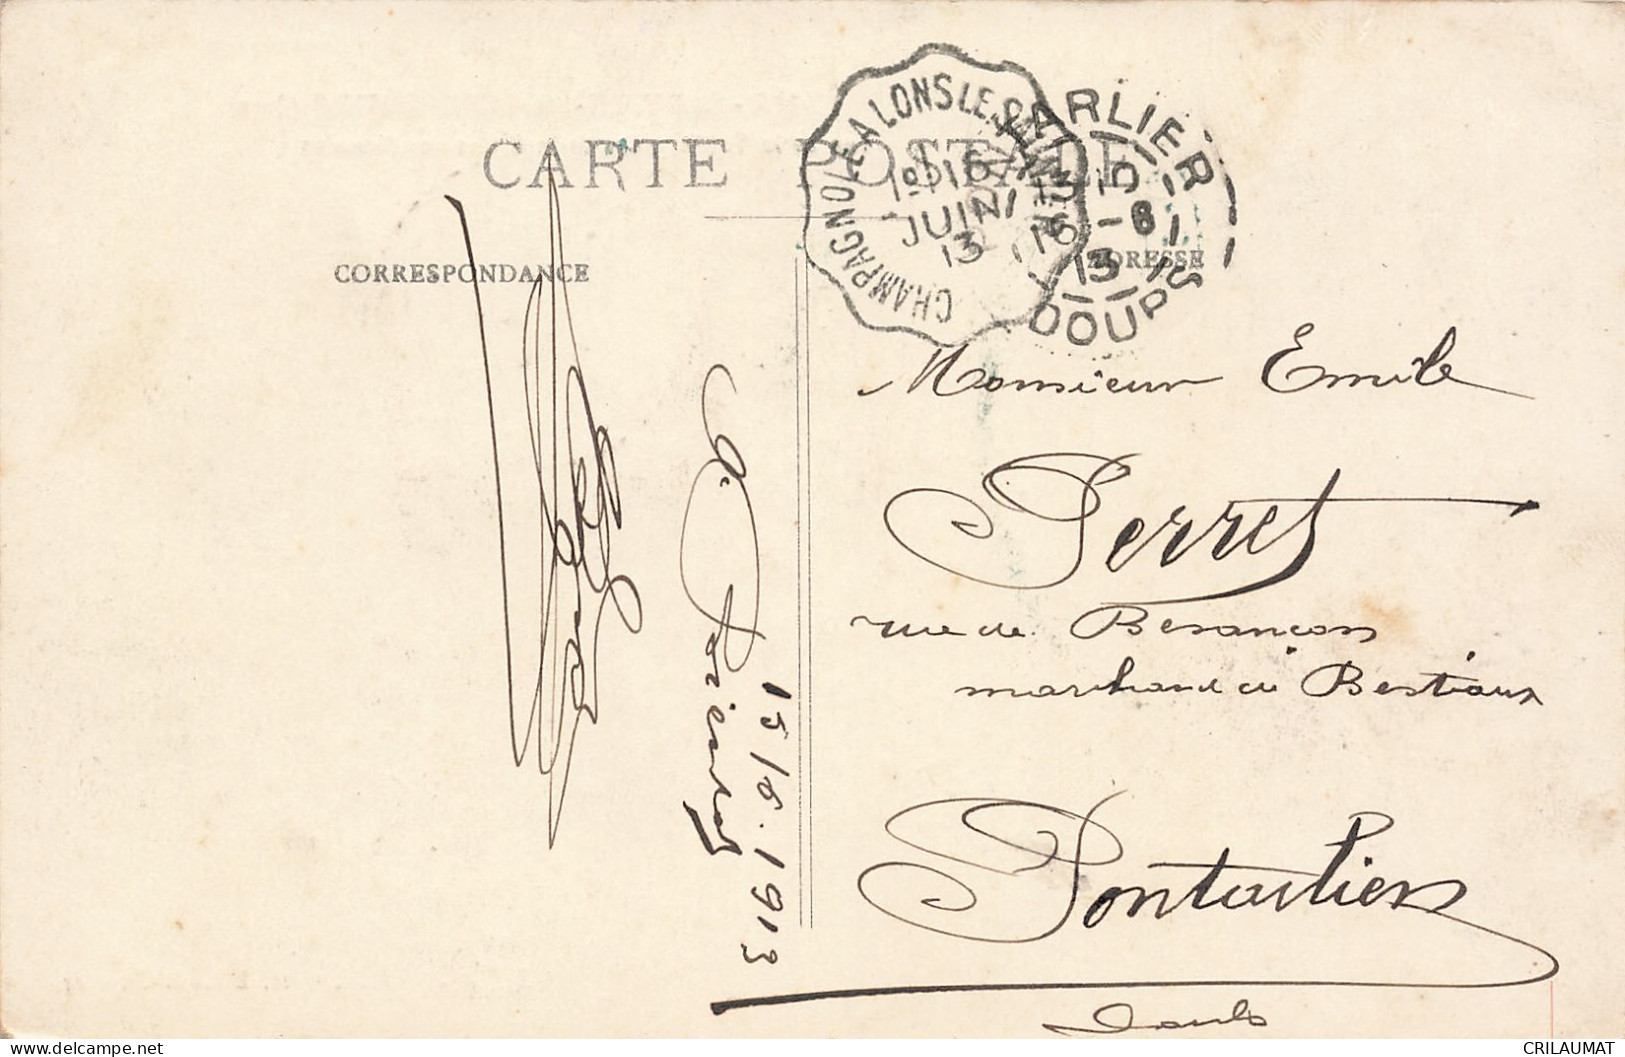 CARTE POSTALE
CORRESPONDANCE
ADRESSE
CHAMPAGNOLE A LONS LE SAUNIER
1º 16
JUIN
13
PONTARLIER
15 16-6
13
DOUBS
Monsieur Emile
Perret
rue de Besançon
marchand de Bestiaux
Pontarlier
Doubs
15/6.1913
CRILAUMAT